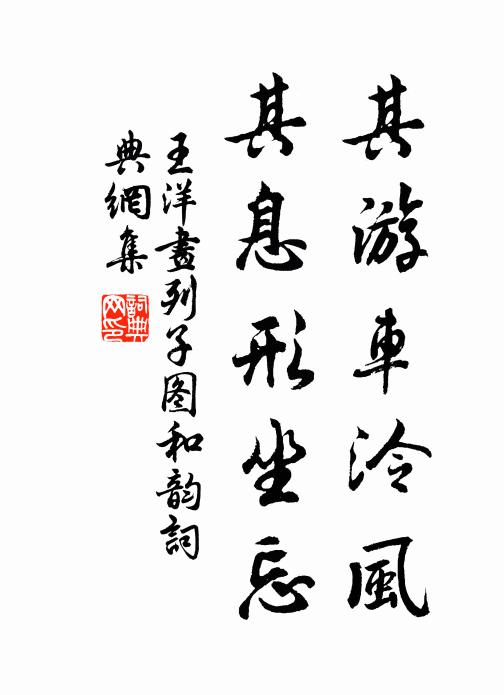 其游車泠風
其息形坐忘
王洋畫列子图和韵詞
典網集
詞典
网印